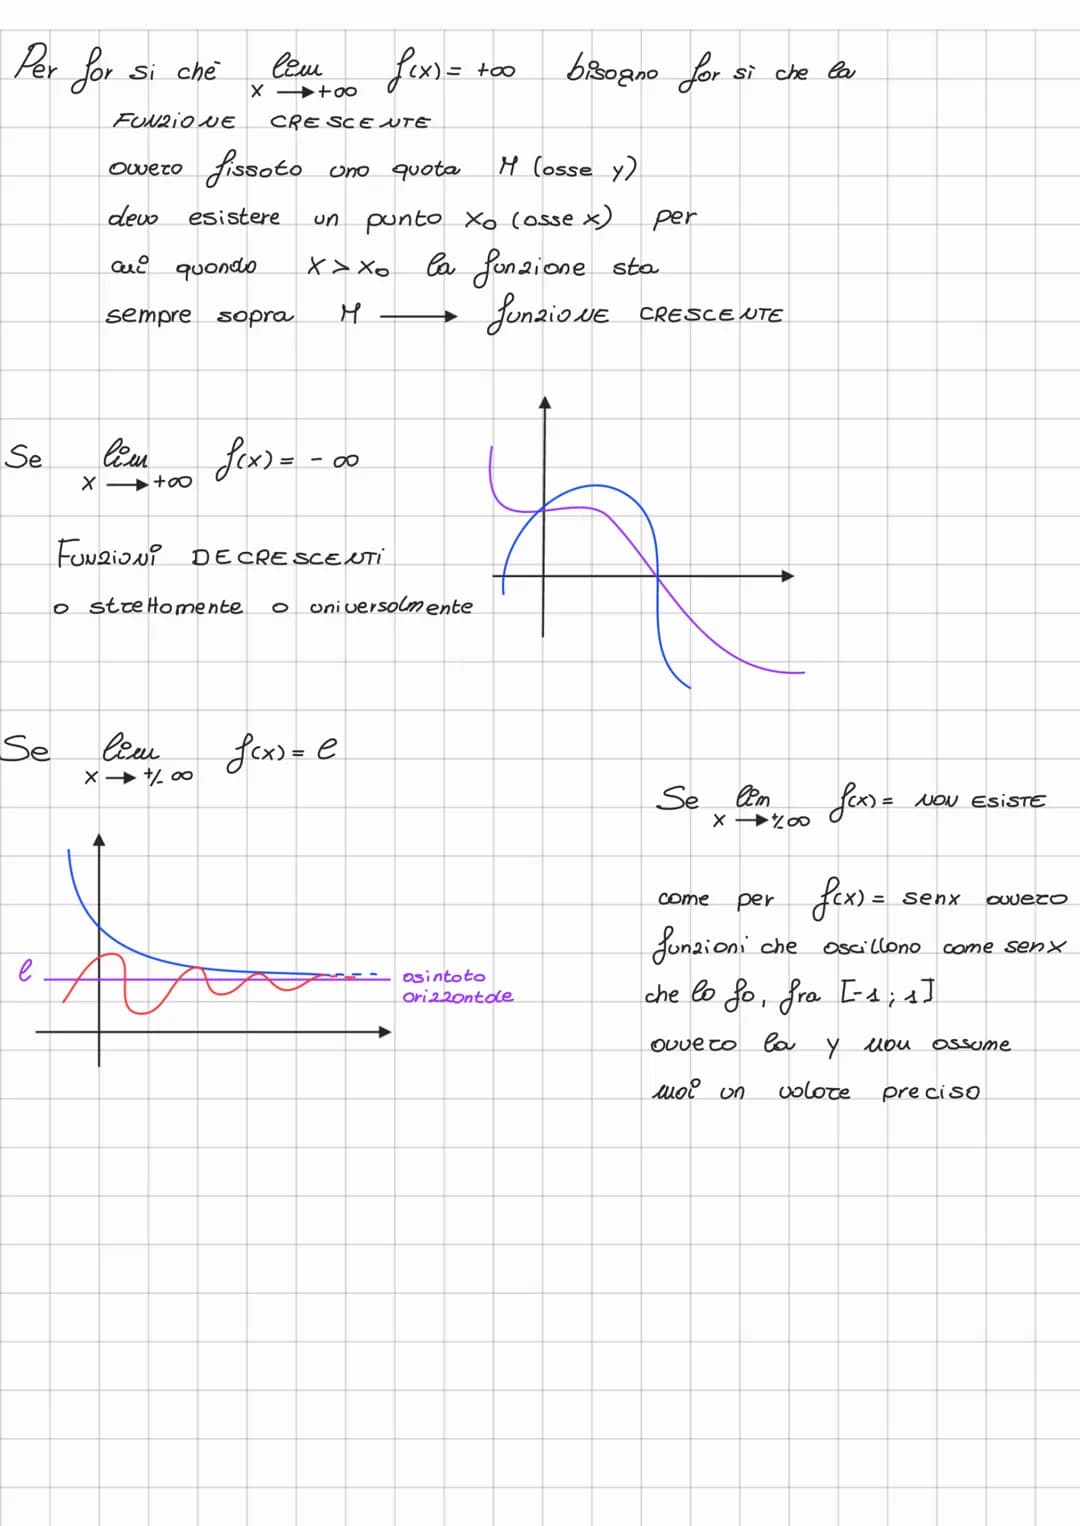 Per far si che lim f(x) = +∞ bisogna far si che la
x → +∞
FUNZIONE CRESCENTE
ovvero fissato una quota M (asse y)
deve esistere un punto x₀ (asse x) per
cui quando x > x₀ la funzione sta
sempre sopra M → funzIONE CRESCENTE
Se lim f(x) = - ∞
x → +∞
FUNZIONI DECRESCENTI
o strettamente o universalmente
Se lim f(x) = l
x → +/- ∞
Se lim f(x) = NON ESISTE
x → +/- ∞
come per f(x) = senx ovvero
funzioni che oscillano come senx
che lo fa, fra [-1 ; 1]
ovvero la y non assume
mai un valore preciso
l
asintoto
orizzontale